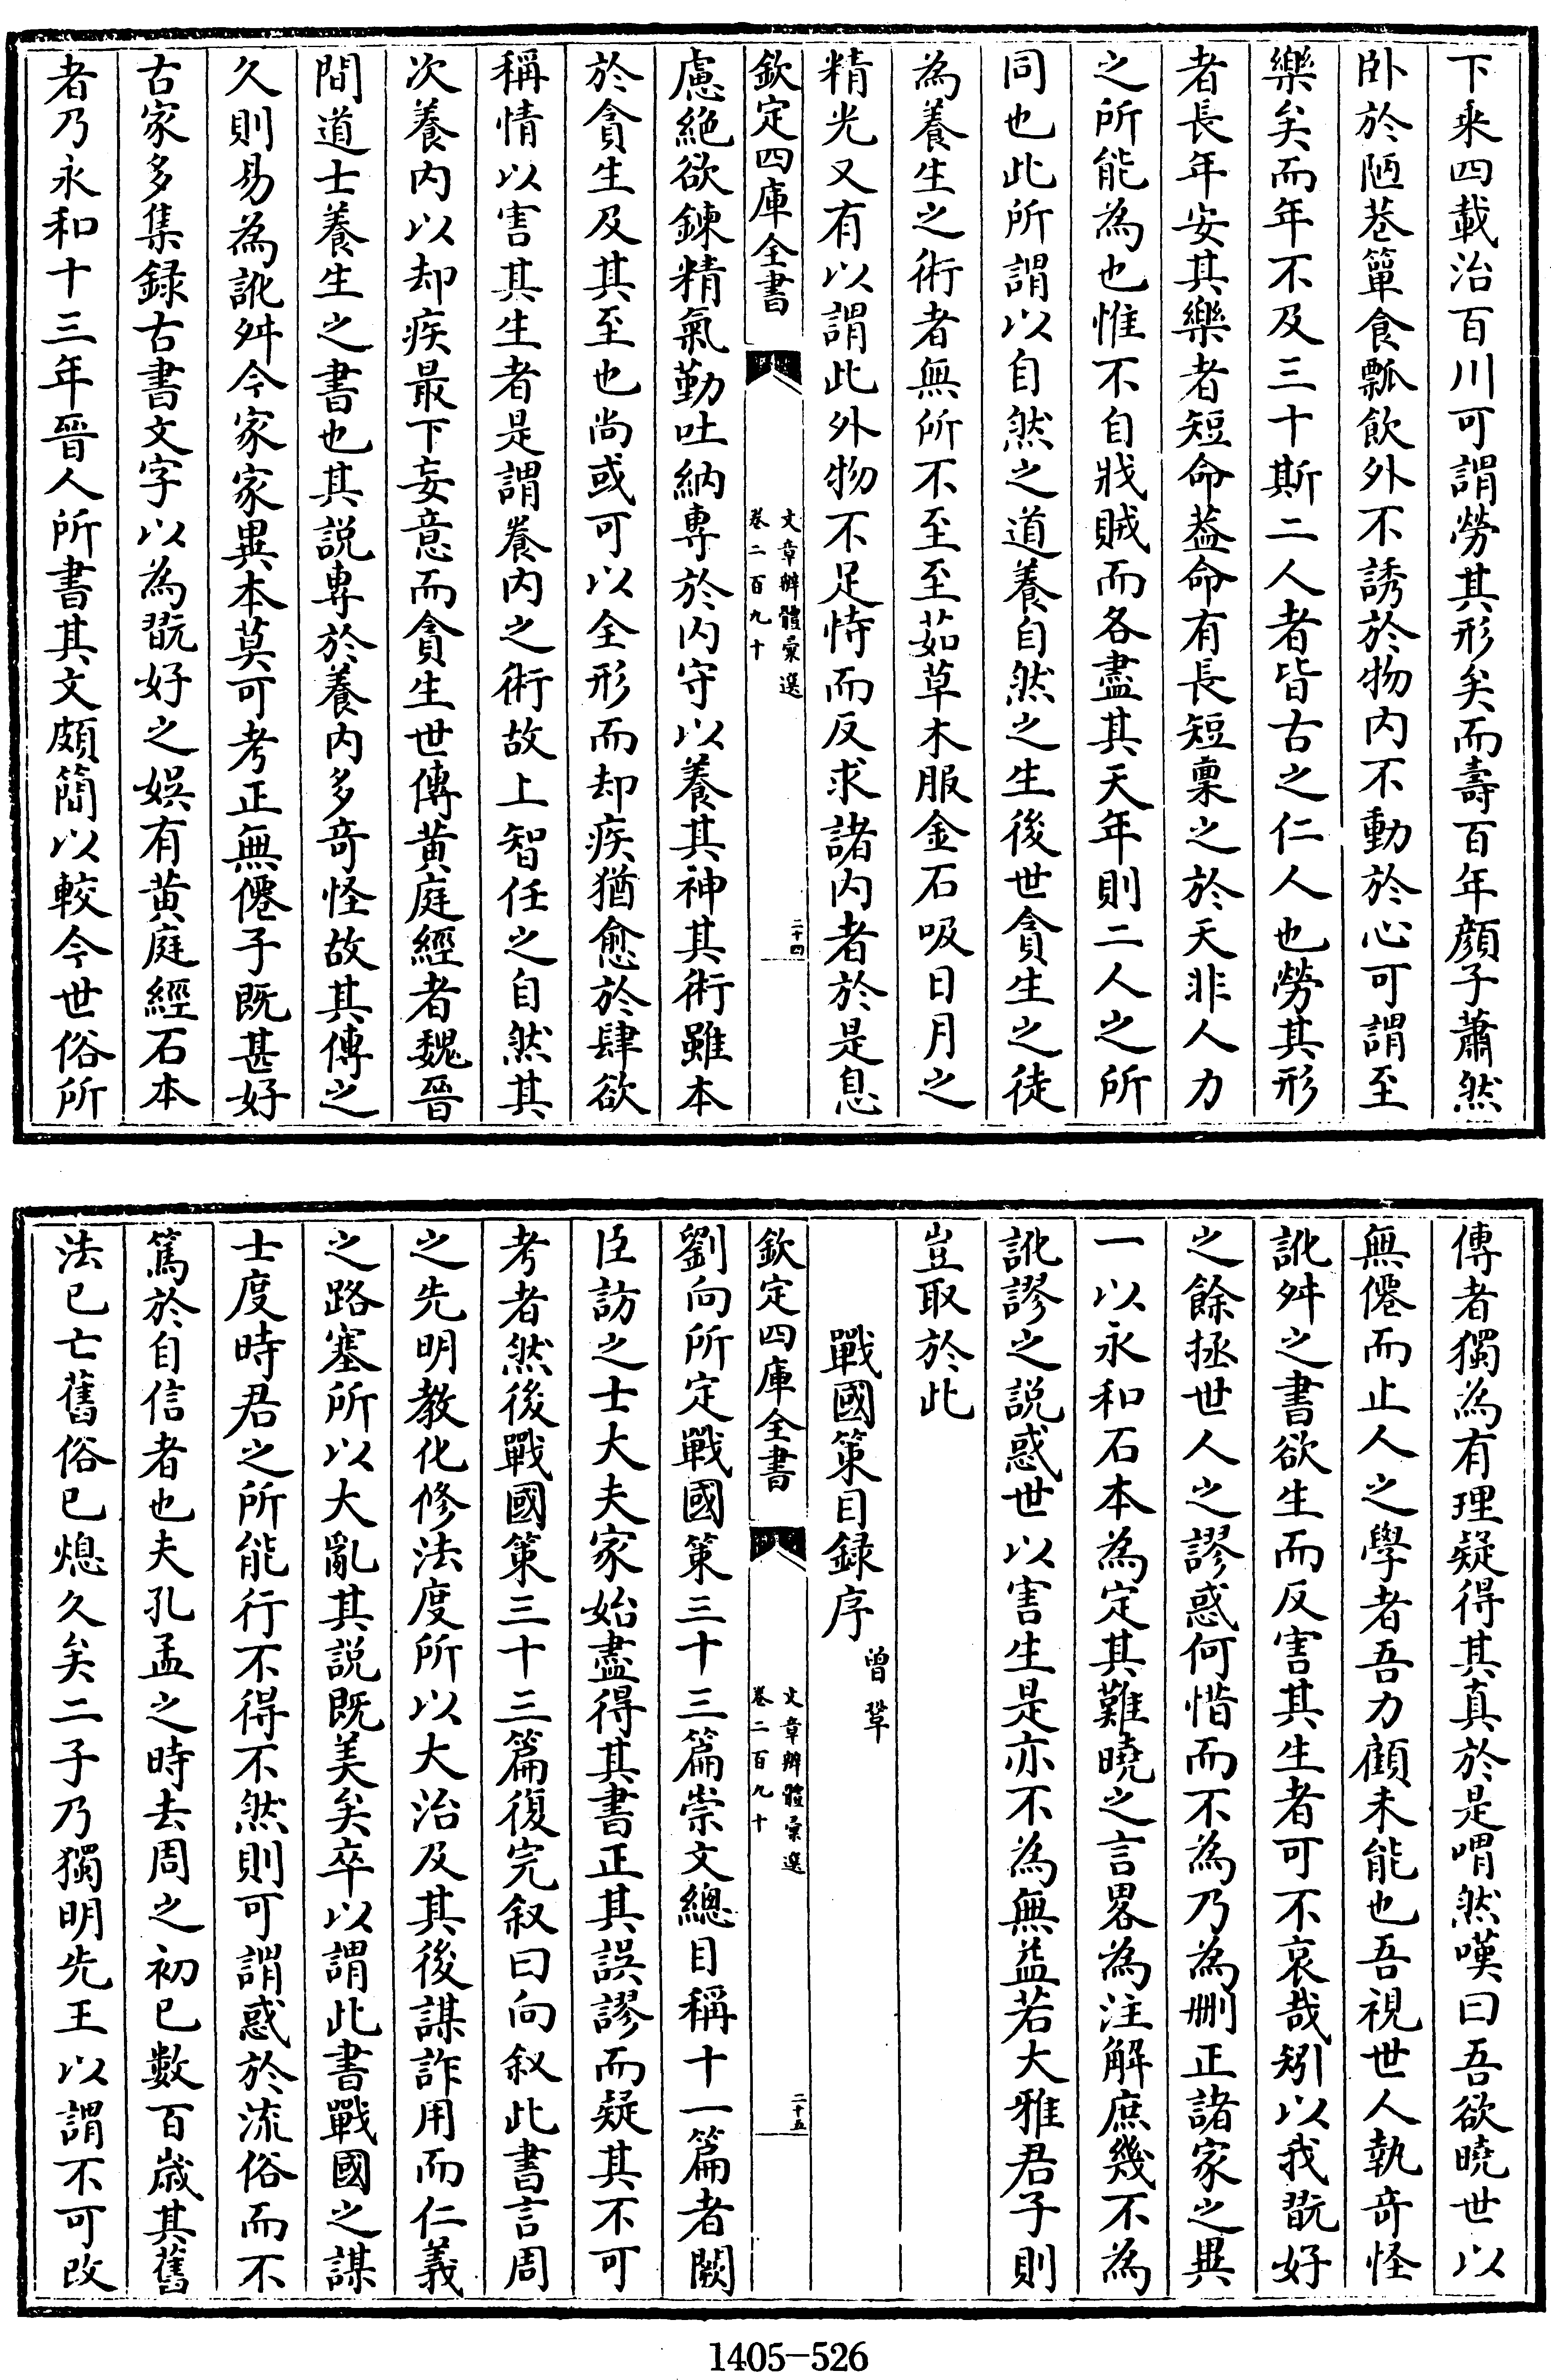 下来四載治百川可謂勞其形矣而壽百年顔子蕭然
卧於陋巷簞食瓢飲外不誘於物内不動於心可謂至
樂矣而年不及三十斯二人者皆古之仁人也勞其形
者長年安其樂者短命葢命有長短稟之於天非人力
之所能為也惟不自戕賊而各盡其天年則二人之所
同也此所謂以自然之道養自然之生後世貪生之徒
為養生之術者無所不至至茹草木服金石吸日月之
精光又有以謂此外物不足恃而反求諸内者於是息
欽定四庫全書
文章辨體彙選
卷二百九十
二十四
慮絶欲鍊精氣勤吐納専於内守以養其神其術雖本
於貪生及其至也尚或可以全形而却疾猶愈於肆欲
稱情以害其生者是謂養内之術故上智任之自然其
次養内以却疾最下妄意而貪生世傳黄庭經者魏晉
間道士養生之書也其説専於養内多竒怪故其傳之
久則易為訛舛今家家異本莫可考正無僊子既甚好
古家多集録古書文字以為翫好之娯有黄庭經石本
者乃永和十三年晉人所書其文頗簡以較今世俗所
傳者獨為有理疑得其真於是喟然嘆曰吾欲曉世以
無僊而止人之學者吾力顧未能也吾視世人執竒怪
訛舛之書欲生而反害其生者可不哀哉矧以我翫好
之餘拯世人之謬惑何惜而不為乃為刪正諸家之異
一以永和石本為定其難曉之言畧為注解庶幾不為
訛謬之説惑世以害生是亦不為無益若大雅君子則
豈取於此
戰國策目録序
曾鞏
欽定四庫全書
文章辨體彙選
卷二百九十
二十五
劉向所定戰國策三十三篇崇文總目稱十一篇者闕
臣訪之士大夫家始盡得其書正其誤謬而疑其不可
考者然後戰國策三十三篇復完叙曰向叙此書言周
之先明教化修法度所以大治及其後謀詐用而仁義
之路塞所以大亂其説既美矣卒以謂此書戰國之謀
士度時君之所能行不得不然則可謂惑於流俗而不
篤於自信者也夫孔孟之時去周之初已數百歳其舊
法已亡舊俗已熄久矣二子乃獨明先王以謂不可改
1405-526